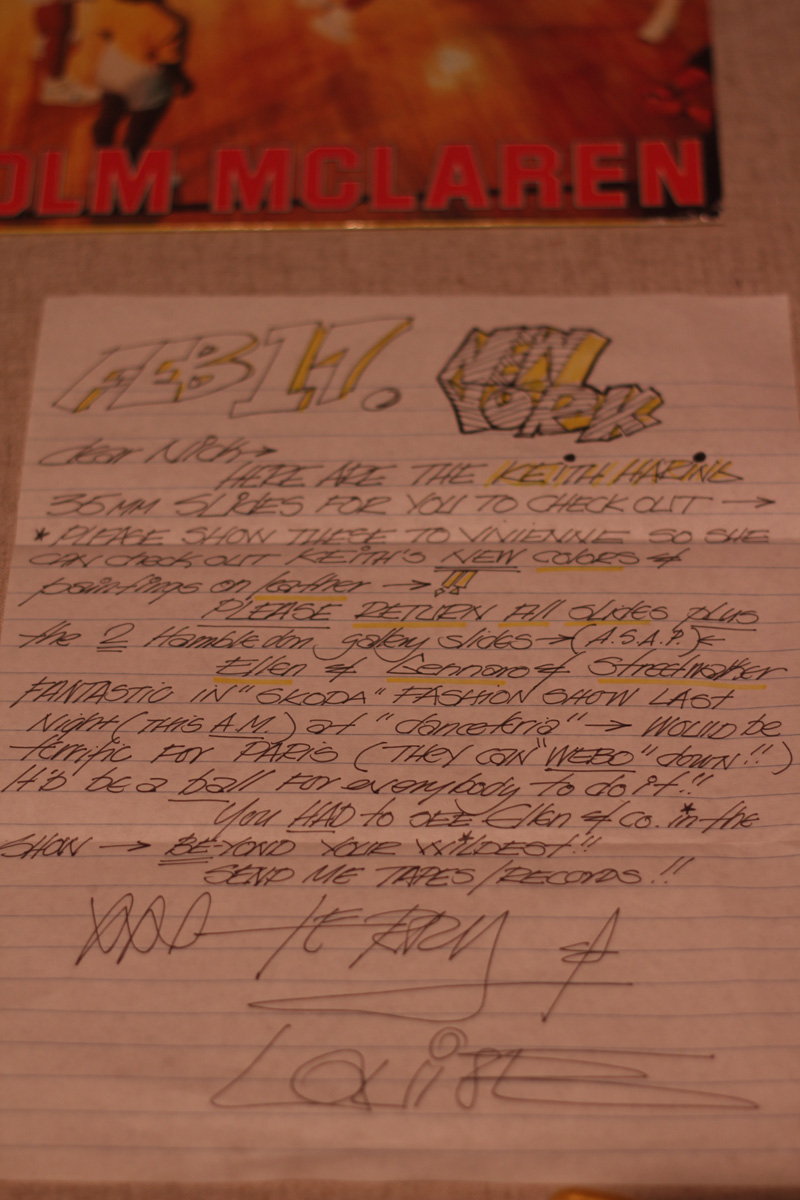 OLM MCLAREN
FEB 17. NEW YORK
dear Nick,
HERE ARE THE KEITH HARING
35MM SLIDES FOR YOU TO CHECK OUT →
* PLEASE SHOW THESE TO VIVIENNE SO SHE
CAN check OUT KEITH'S NEW COLORS &
paintings on leather → !!!
PLEASE RETURN All SLIDES plus
the 2 Hambledon gallery slides → (A.S.A.P.) ←
Ellen & Gennaro & Streetwalker
FANTASTIC IN "SKODA" FASHION SHOW LAST
Night (THIS A.M.) at "danceteria" → WOULD be
terrific FOR PARIS (THEY CAN "WEBO" down!!)
It'D bE a ball FOR everybody TO do it!!
You HAD to SEE Ellen & co. in the
SHOW → BEYOND YOUR WILDEST!!
SEND ME TAPES/RECORDS!!
XXX TERRY &
LOUISE